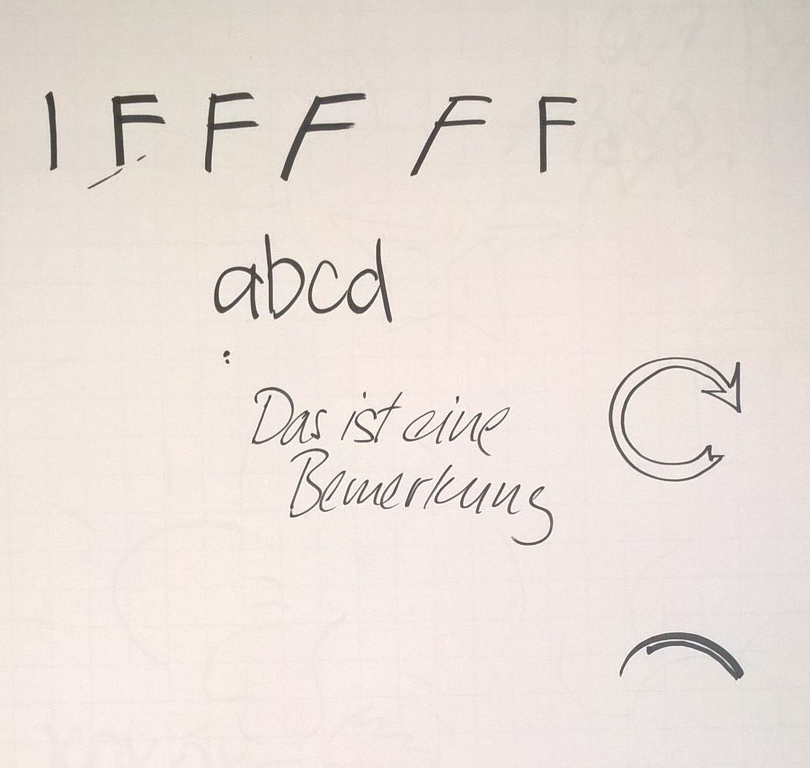 I F F F F F
abcd
Das ist eine
Bemerkung